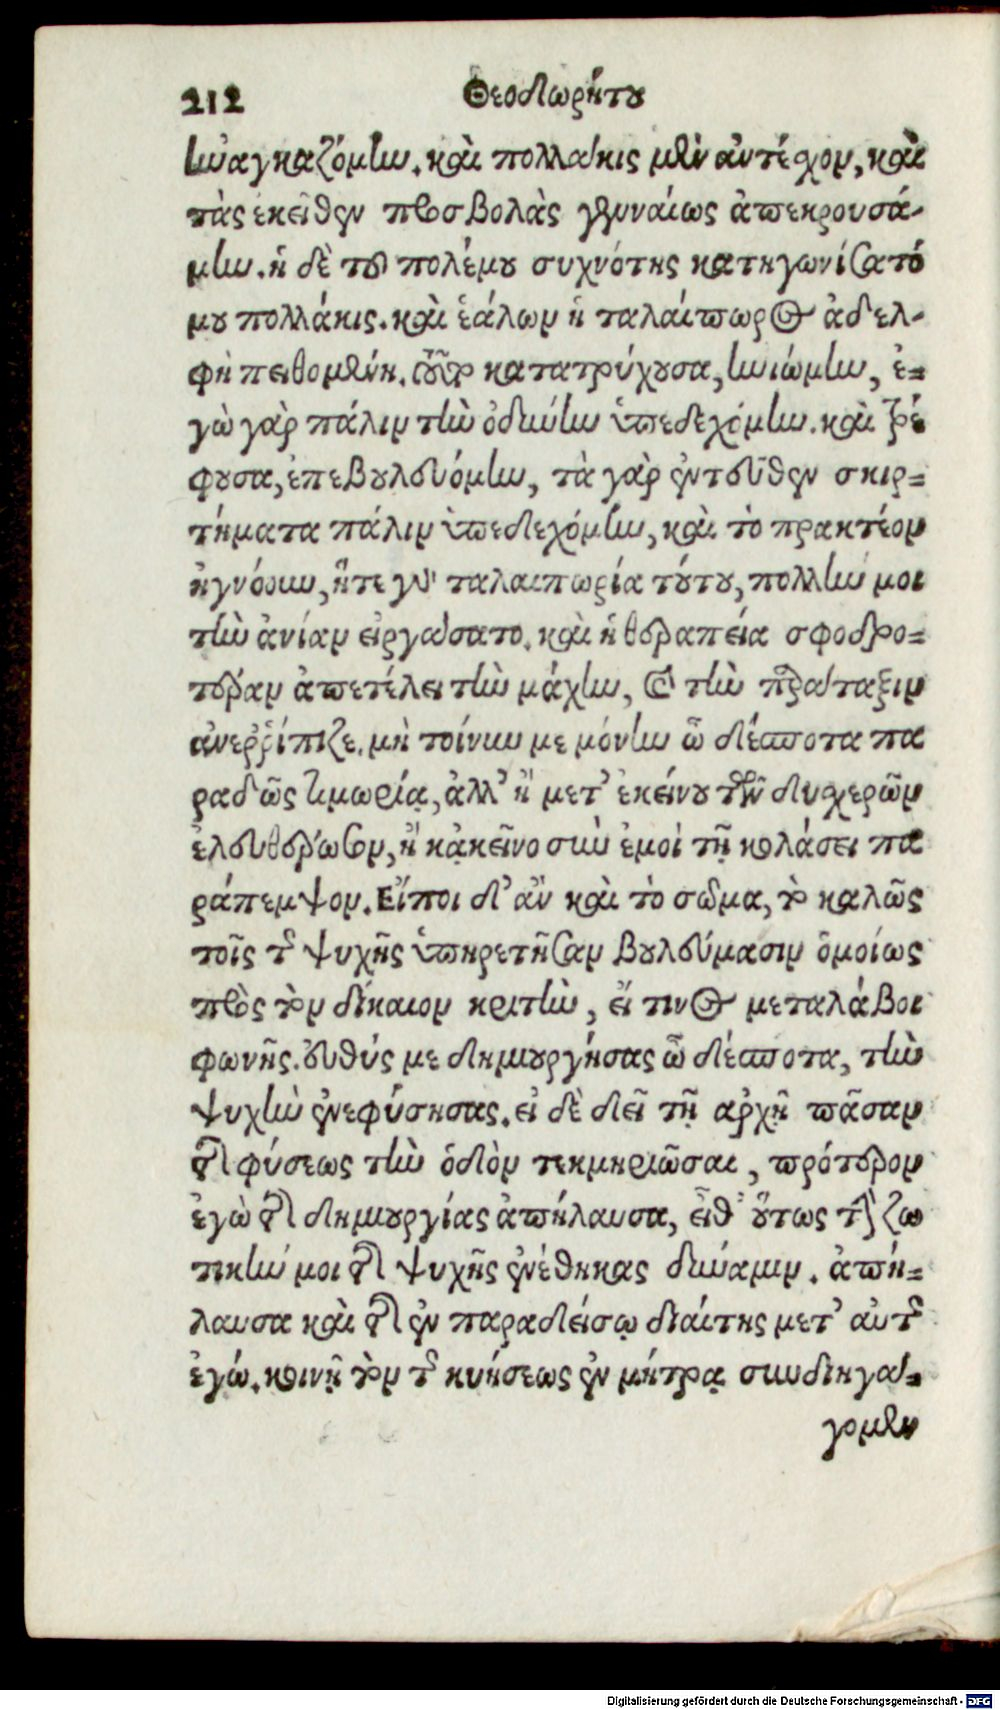 212 Θεοδωρήτου
ἠναγκαζόμην. καὶ πολλάκις μὲν ἀντέσχον, καὶ
τὰς ἐκεῖθεν προσβολὰς γενναίως ἀπεκρουσά-
μην. ἡ δὲ τοῦ πολέμου συχνότης κατηγωνίσατό
μου πολλάκις. καὶ ἑάλων ἡ ταλαίπωρος ἀδελ-
φὴ πειθομένη. κατατρύχουσα, ἠνιώμην, ἐ-
γὼ γὰρ πάλιν τὴν ὀδύνην ὑπεδεχόμην. καὶ τρέ
φουσα, ἐπεβουλευόμην, τὰ γὰρ ἐντεῦθεν σκιρ-
τήματα πάλιν ὑπεδεχόμην, καὶ τὸ πρακτέον
ἠγνόουν, ἥτε γὰρ ταλαιπωρία τούτου, πολλήν μοι
τὴν ἀνίαν εἰργάσατο. καὶ ἡ θεραπεία σφοδρο-
τέραν ἀπετέλει τὴν μάχην, καὶ τὴν παράταξιν
ἀνερρίπιζε. μὴ τοίνυν με μόνην ὦ δέσποτα πα
ραδῷς τιμωρίᾳ, ἀλλ' ἢ μετ' ἐκείνου τῶν δυσχερῶν
ἐλευθέρωσον, ἢ κἀκεῖνο σὺν ἐμοὶ τῇ κολάσει πα
ράπεμψον. Εἴποι δ' ἂν καὶ τὸ σῶμα, τὸ καλῶς
τοῖς τῆς ψυχῆς ὑπηρετῆσαν βουλεύμασιν ὁμοίως
πρὸς τὸν δίκαιον κριτὴν, εἴ τινος μεταλάβοι
φωνῆς. εὐθύς με δημιουργήσας ὦ δέσποτα, τὴν
ψυχὴν ἐνεφύσησας. εἰ δὲ δεῖ τῇ ἀρχῇ πᾶσαν
τῆς φύσεως τὴν ὁδὸν τεκμηριῶσαι, πρότερον
ἐγὼ τῆς δημιουργίας ἀπήλαυσα, εἶθ' οὕτως τὴν ζω
τικήν μοι τῆς ψυχῆς ἐνέθηκας δύναμιν. ἀπή-
λαυσα καὶ τῆς ἐν παραδείσῳ διαίτης μετ' αὐτῆς
ἐγώ. κοινῇ τὸν τῆς κυήσεως ἐν μήτρᾳ συνδιηγά-
γομεν
Digitalisierung gefördert durch die Deutsche Forschungsgemeinschaft - DFG